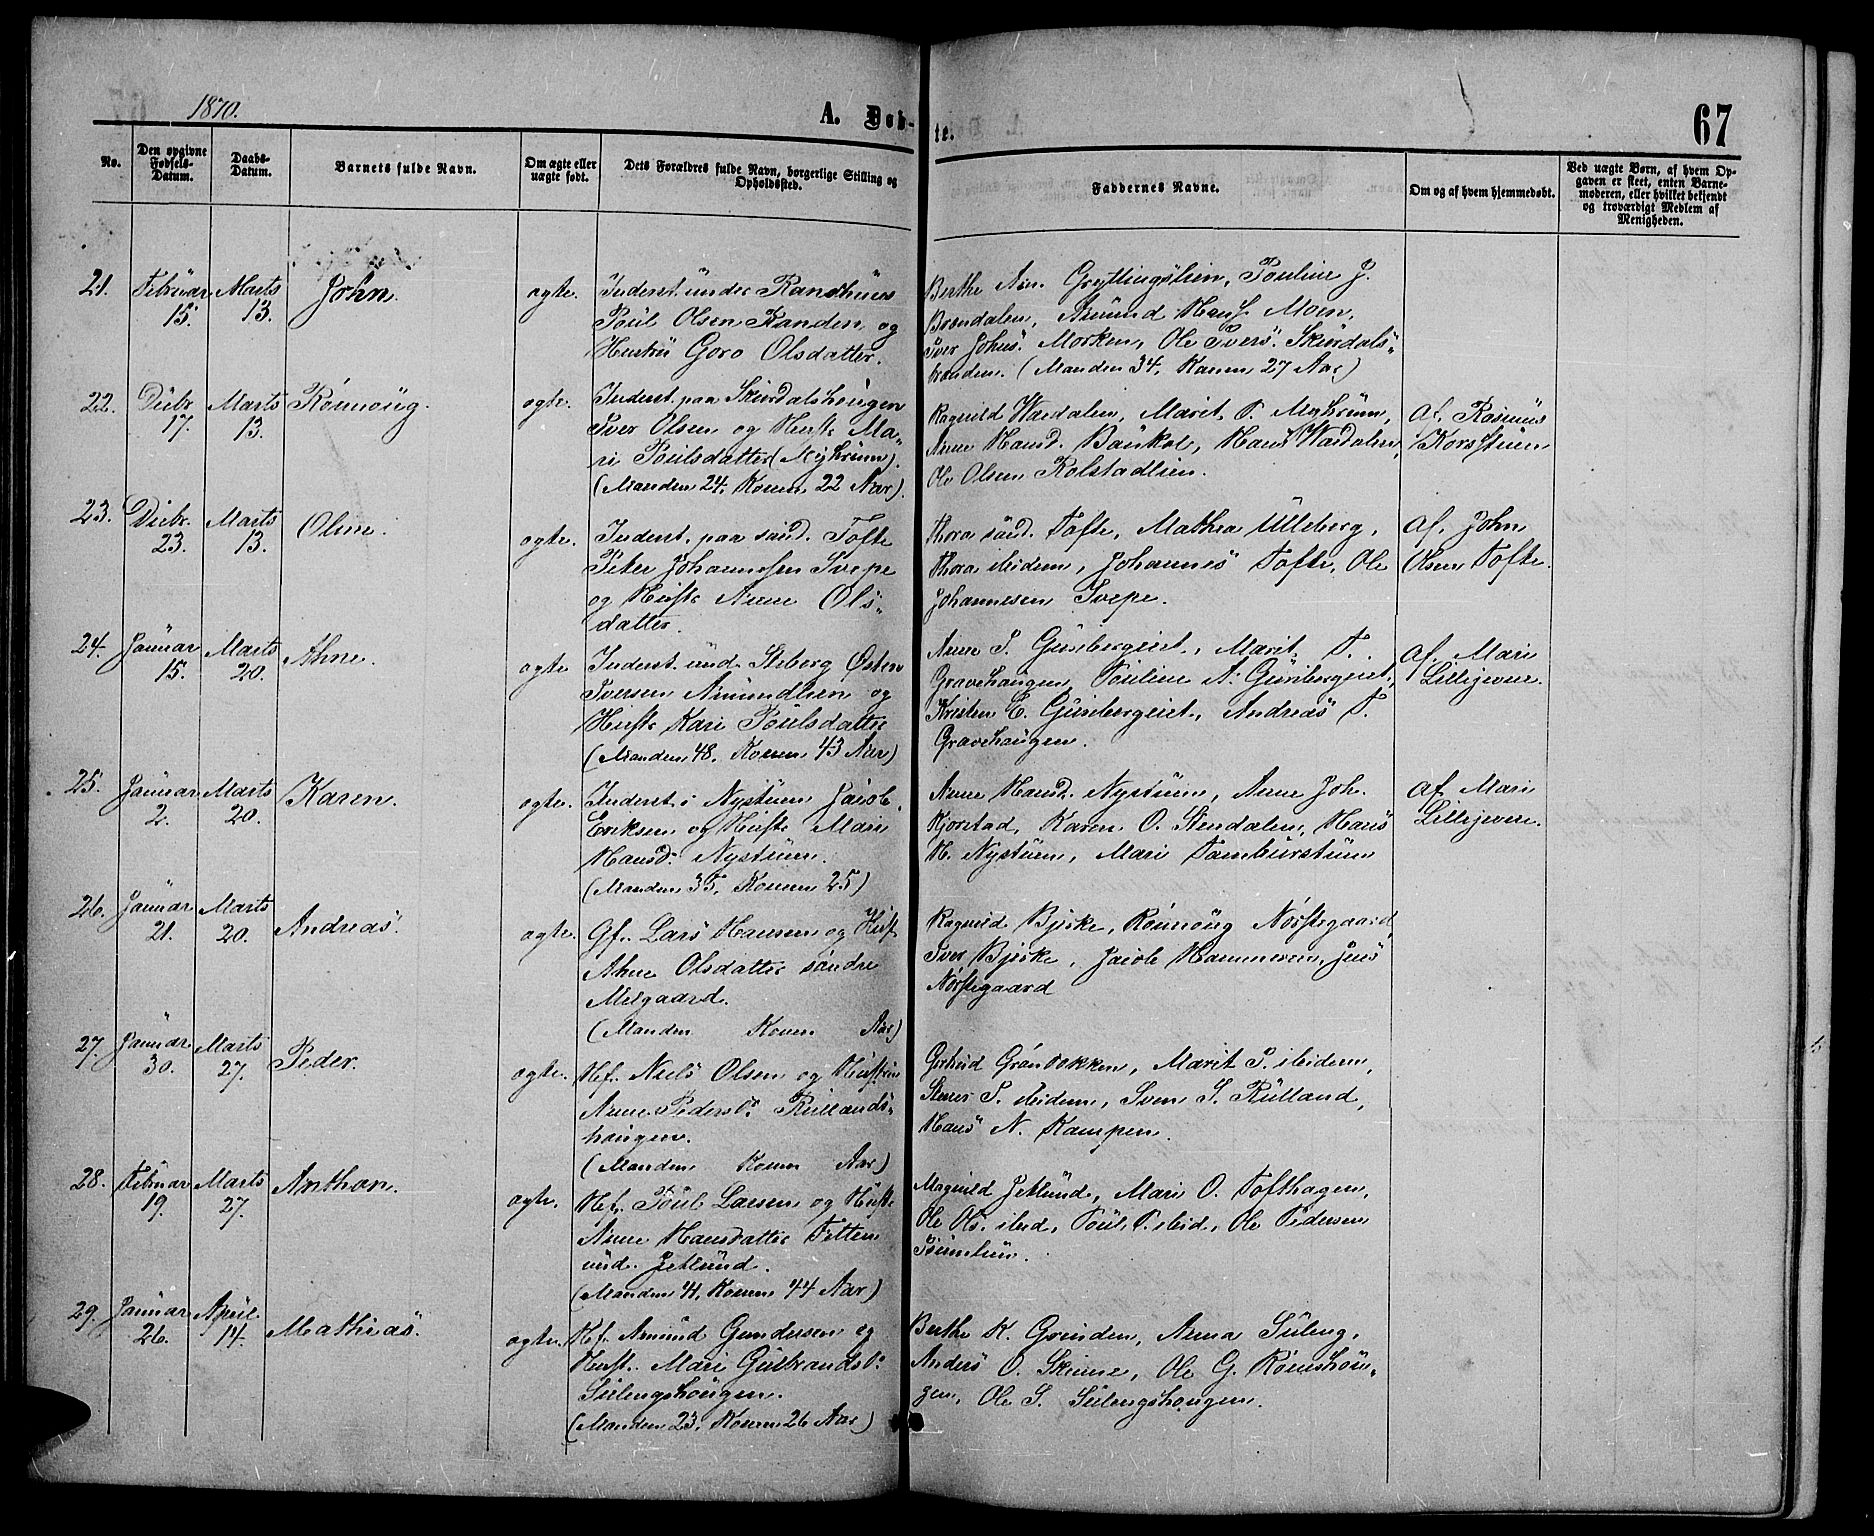 1870.
A. Døb-
te.
67
No.
Den opgivne Fødsels-Datum.
Daabs-Datum.
Barnets fulde Navn.
Om ægte eller uægte født.
Dets Forældres fulde Navn, borgerlige Stilling og Opholdssted.
Faddernes Navne.
Om og af hvem hjemmedøbt.
Ved uægte Børn, af hvem Opgaven er skeet, enten Barnemoderen, eller hvilket bekjendt og troværdigt Medlem af Menigheden.
21. Februar 15. Marts 13. John. ægte.
Inderst under Randhuus
Poul Olsen Randen og
Hustru Goro Olsdatter.
Berthe Am. Gryttingslien, Pouline J.
Brendalen, Amund Hans Moen,
Iver Johns. Morken, Ole Ivers. Skurdals-
branden. (Manden 34, Konen 27 Aar)
22. Decbr. 17. Marts 13. Rønnoug. ægte.
Inderst paa Skurdalshougen
Iver Olsen og Hust. Ma-
ri Poulsdatter (Myhrum).
(Manden 24, Konen 22 Aar).
Ragnild Vardalen, Marit P. Myhrum,
Anne Hansd. Baukol, Hans Vaidalen,
Ole Olsen Kolstadlien.
Af Rasmus
Korsstuen
23. Decbr. 23. Marts 13. Oline. ægte.
Inderst paa sønd. Tofte
Peter Johannessen Svepe
og Hust. Anne Ols-
datter.
Thora sønd. Tofte, Mathea Ulleberg,
Thora ibidem, Johannes Tofte, Ole
Johannesen Svepe.
Af John
Olsen Tofte.
24. Januar 15. Marts 20. Ahne. ægte
Inderst und. Steberg Østen
Iversen Amundlien og
Hust. Kari Poulsdatter
(Manden 48, Konen 43 Aar)
Anne P. Gunbergeiet, Marit T.
Gravehaugen, Pouline A. Gunbergeiet,
Kristen E. Gunbergeiet, Andreas T.
Gravehaugen.
Af Mari
Lillejevne.
25. Januar 2. Marts 20. Karen. ægte.
Inderst i Nystuen Jacob
Eriksen og Hust. Mari
Hansd. Nystuen.
(Manden 35, Konen 25)
Anne Hansd. Nystuen, Anne Joh.
Kjorstad, Karen O. Stendalen, Hans
H. Nystuen, Mari Tamburstuen
Af Mari
Lillejevne.
26. Januar 21. Marts 20. Andreas. ægte.
Gf. Lars Hansen og Hust
Ahne Olsdatter søndre
Melgaard.
(Manden Konen Aar)
Ragnild Bjerke, Rønnoug Nørstegaard,
Iver Bjerke, Jacob Hammeren, Jens
Nørstegaard
27. Januar 30. Marts 27. Peder. ægte.
Hf. Niels Olsen og Hustru
Anne Pedersd. Rullands-
hougen.
(Manden Konen Aar)
Gertrud Grønbakken, Marit P. ibidem,
Stener P. ibidem, Sven S. Rulland,
Hans N. Kampen.
28. Februar 19. Marts 27. Anthon. ægte.
Hf. Poul Larsen og Hust.
Anne Hansdatter Fetten
und. Jetlund.
(Manden 41, Konen 44 Aar)
Magnild Jetlund, Mari O. Tofthagen,
Ole Ols. ibid, Poul P. ibid, Ole Pedersen
29. Januar 26. April 14. Mathias. ægte.
Hf. Amund Gundersen og
Hust. Mari Gulbrandsd.
Sulengshougen.
(Manden 23, Konen 26 Aar)
Berthe K. Grinden, Anna Suleng,
Anders O. Skinne, Ole G. Romshou-
gen, Ole S. Sulengshougen.